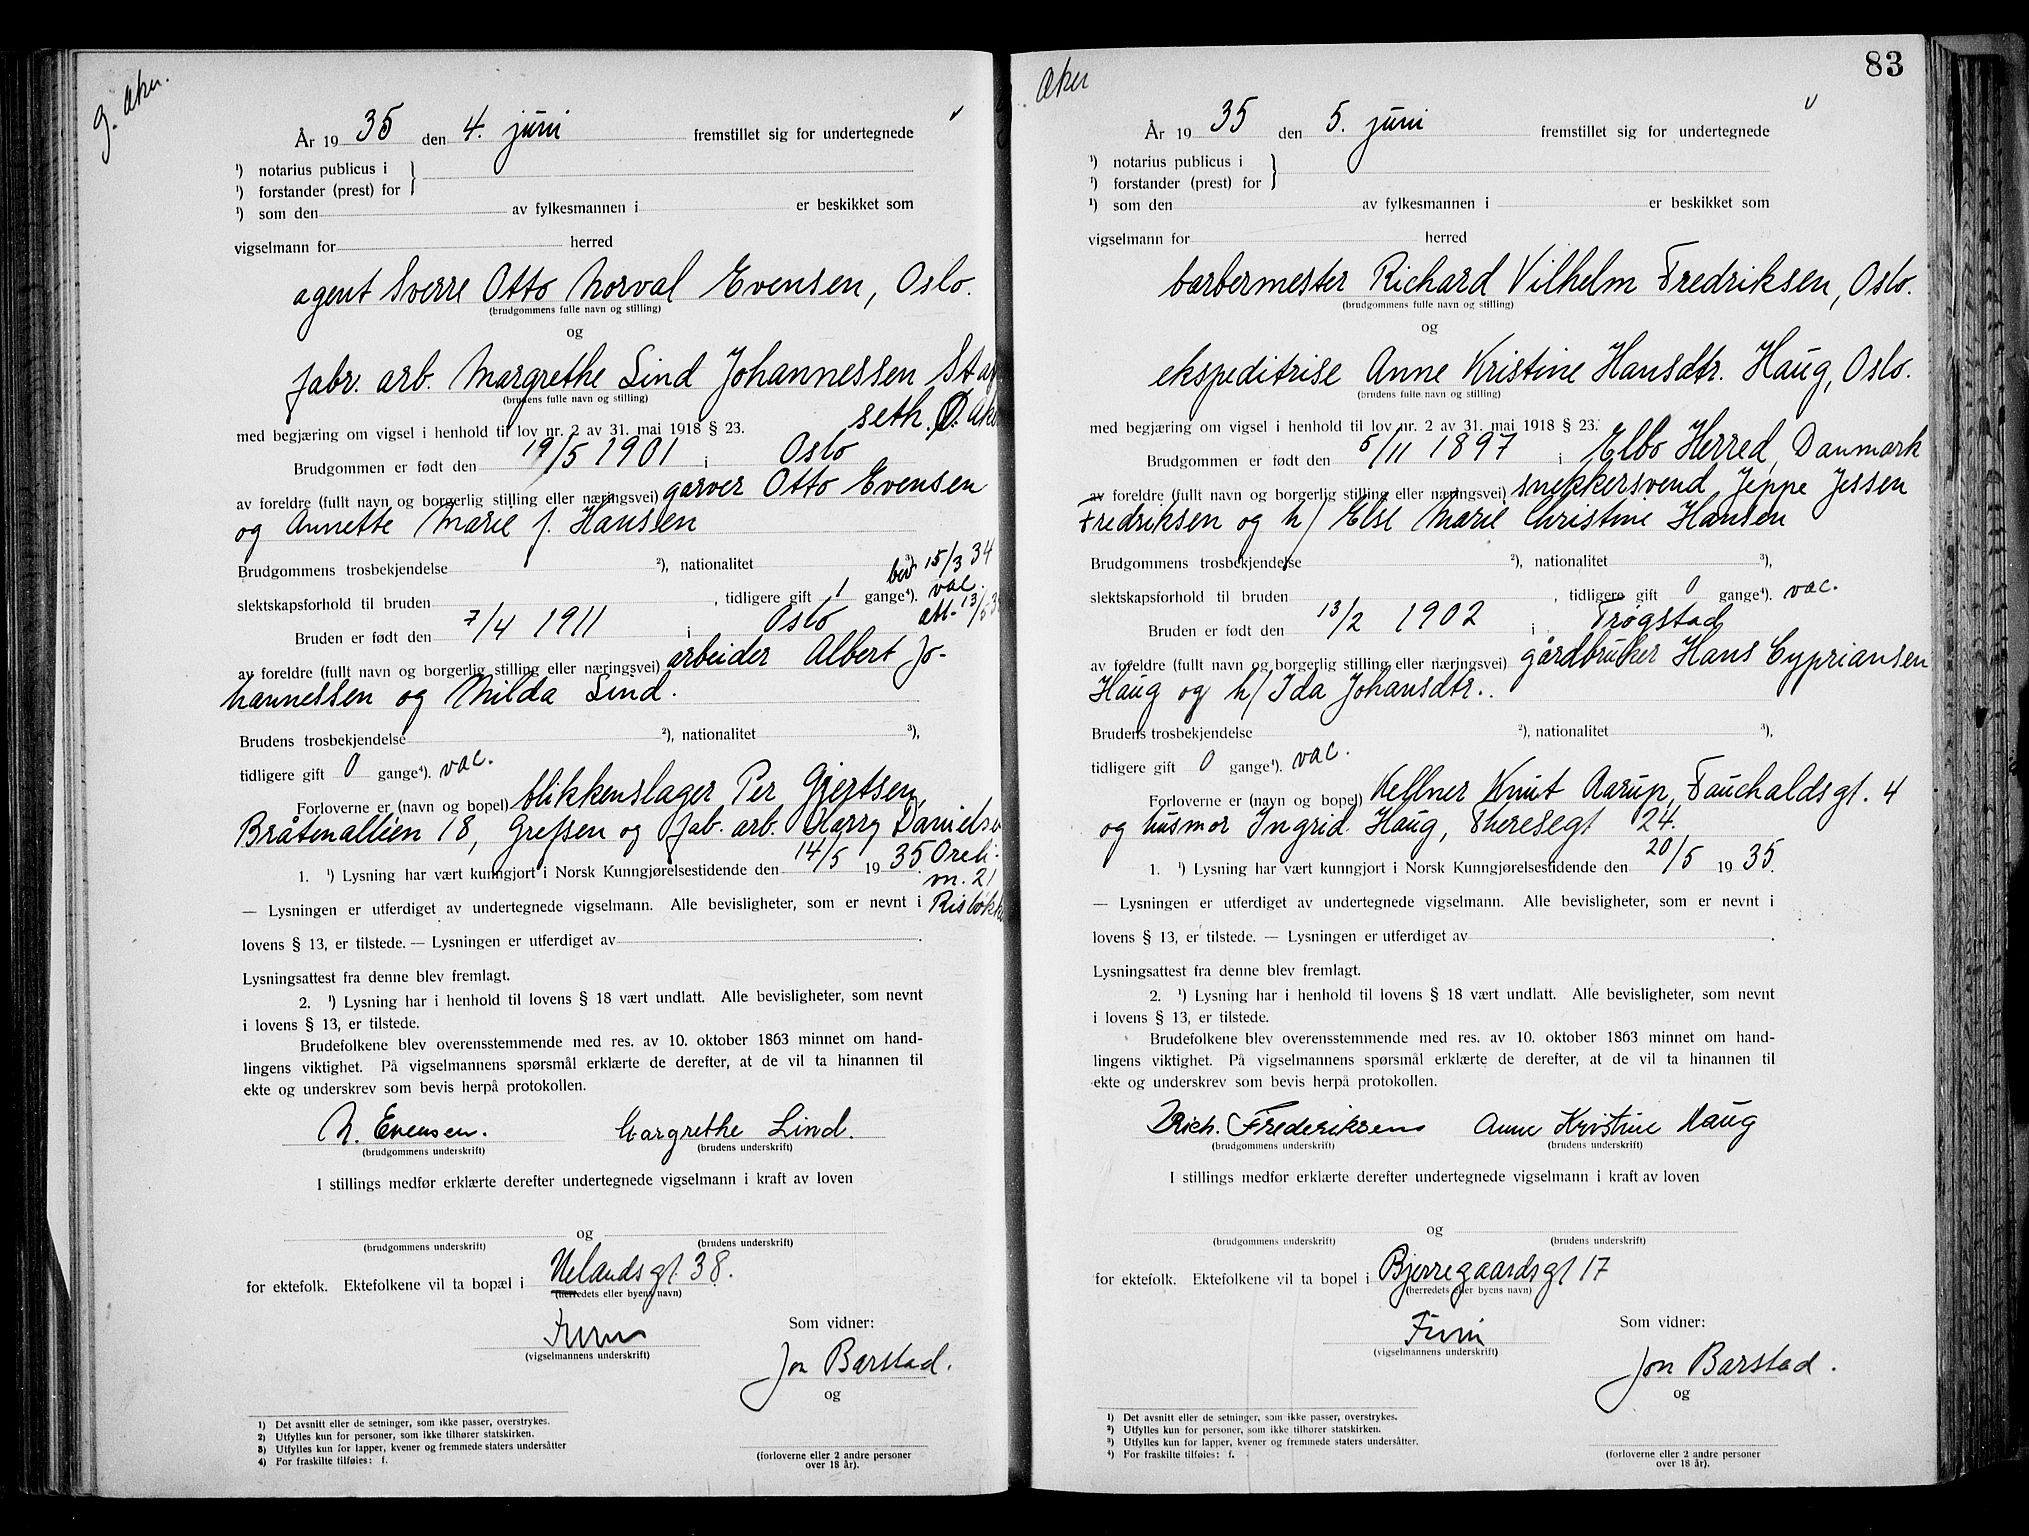 g. Aker.
År 19 35 den 4. juni fremstillet sig for undertegnede
¹) notarius publicus i
¹) forstander (prest) for
¹) som den av fylkesmannen i er beskikket som
vigselmann for herred
agent Sverre Otto Norval Evensen, Oslo.
(brudgommens fulle navn og stilling)
og
fabr. arb. Margrethe Lind Johannessen
(brudens fulle navn og stilling)
seth.
med begjæring om vigsel i henhold til lov nr. 2 av 31. mai 1918 § 23.
Brudgommen er født den 19/5 1901 i Oslo
av foreldre (fullt navn og borgerlig stilling eller næringsvei) garver Otto Evensen
og Annette Marie f. Hansen
Brudgommens trosbekjendelse ²), nationalitet ³) bev. 15/3 34
slektskapsforhold til bruden , tidligere gift 1 gange⁴). vac.
Bruden er født den 7/4 1911 i Oslo att. 13/5 3
av foreldre (fullt navn og borgerlig stilling eller næringsvei) arbeider Albert Jo-
hannessen og Milda Lind.
Brudens trosbekjendelse ²), nationalitet ³),
tidligere gift 0 gange⁴). vac.
Forloverne er (navn og bopel) blikkenslager Per Gjertsen,
Bråtenalléen 18, Grefsen og fab. arb. Harry Danielse
1. ¹) Lysning har vært kunngjort i Norsk Kunngjørelsestidende den 14/5 19 35. Oreli-
m. 21
— Lysningen er utferdiget av undertegnede vigselmann. Alle bevisligheter, som er nevnt i Risløkk
lovens § 13, er tilstede. — Lysningen er utferdiget av .
Lysningsattest fra denne blev fremlagt.
2. ¹) Lysning har i henhold til lovens § 18 vært undlatt. Alle bevisligheter, som nevnt
i lovens § 13, er tilstede.
Brudefolkene blev overensstemmende med res. av 10. oktober 1863 minnet om hand-
lingens viktighet. På vigselmannens spørsmål erklærte de derefter, at de vil ta hinannen til
ekte og underskrev som bevis herpå protokollen.
N. Evensen. Margrethe Lind.
(brudgommens underskrift) (brudens underskrift)
I stillings medfør erklærte derefter undertegnede vigselmann i kraft av loven
og
(brudgommens underskrift) (brudens underskrift)
for ektefolk. Ektefolkene vil ta bopæl i Uelandsgt. 38.
(herredets eller byens navn)
Som vidner:
(vigselmannens underskrift)
Jon Barstad.
og
1) Det avsnitt eller de setninger, som ikke passer, overstrykes.
2) Utfylles kun for personer, som ikke tilhører statskirken.
3) Utfylles kun for lapper, kvener og fremmede staters undersåtter
4) For fraskilte tilføies: f.
(forloverne eller 2 andre personer
over 18 år).
83
Aker
År 19 35 den 5. juni fremstillet sig for undertegnede
¹) notarius publicus i
¹) forstander (prest) for
¹) som den av fylkesmannen i er beskikket som
vigselmann for herred
barbermester Richard Vilhelm Fredriksen, Oslo.
(brudgommens fulle navn og stilling)
og
ekspeditrise Anne Kristine Hansdtr. Haug, Oslo.
(brudens fulle navn og stilling)
med begjæring om vigsel i henhold til lov nr. 2 av 31. mai 1918 § 23.
Brudgommen er født den 5/11 1897 i Elbo Herred, Danmark
av foreldre (fullt navn og borgerlig stilling eller næringsvei) snekkersvend Jeppe Jessen
Fredriksen og h/ Else Marie Christine Hansen
Brudgommens trosbekjendelse ²), nationalitet ³),
slektskapsforhold til bruden , tidligere gift 0 gange⁴). vac.
Bruden er født den 13/2 1902 i Trøgstad
av foreldre (fullt navn og borgerlig stilling eller næringsvei) gårdbruker Hans Cypriansen
Haug og h/ Ida Johansdtr.
Brudens trosbekjendelse ²), nationalitet ³),
tidligere gift 0 gange⁴). vac.
Forloverne er (navn og bopel) Kellner Knut Aarup, Fauchaldsgt. 4
og husmor Ingrid Haug, Theresegt 24.
1. ¹) Lysning har vært kunngjort i Norsk Kunngjørelsestidende den 20/5 19 35.
— Lysningen er utferdiget av undertegnede vigselmann. Alle bevisligheter, som er nevnt i
lovens § 13, er tilstede. — Lysningen er utferdiget av .
Lysningsattest fra denne blev fremlagt.
2. ¹) Lysning har i henhold til lovens § 18 vært undlatt. Alle bevisligheter, som nevnt
i lovens § 13, er tilstede.
Brudefolkene blev overensstemmende med res. av 10. oktober 1863 minnet om hand-
lingens viktighet. På vigselmannens spørsmål erklærte de derefter, at de vil ta hinannen til
ekte og underskrev som bevis herpå protokollen.
Rich. Frederiksen Anne Kristine Haug
(brudgommens underskrift) (brudens underskrift)
I stillings medfør erklærte derefter undertegnede vigselmann i kraft av loven
og
(brudgommens underskrift) (brudens underskrift)
for ektefolk. Ektefolkene vil ta bopel i Bjerregaardsgt 17
(herredets eller byens navn)
Som vidner:
(vigselmannens underskrift)
Jon Barstad.
og
¹) Det avsnitt eller de setninger, som ikke passer, overstrykes.
²) Utfylles kun for personer, som ikke tilhører statskirken.
³) Utfylles kun for lapper, kvener og fremmede staters undersåtter.
⁴) For fraskilte tilføies: f.
(forloverne eller 2 andre personer
over 18 år).